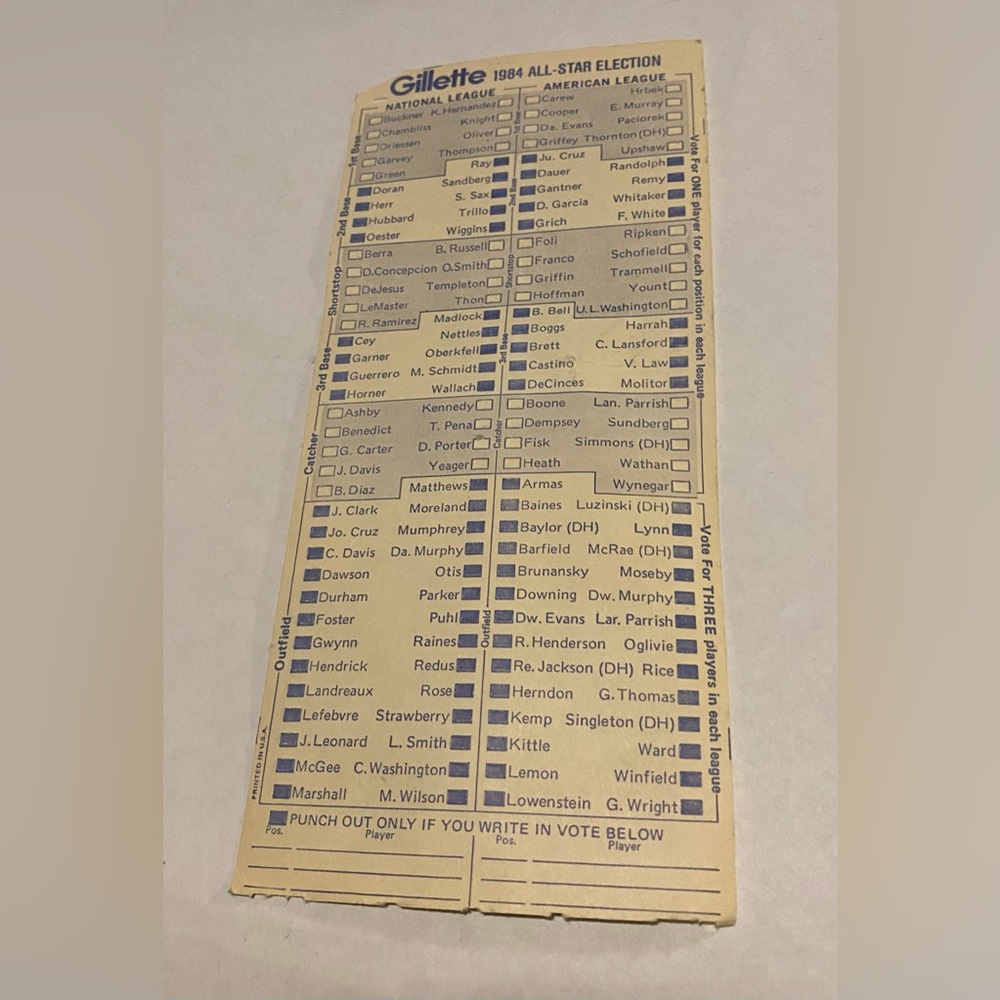 Gillette 1984 ALL-STAR ELECTION
NATIONAL LEAGUE
AMERICAN LEAGUE
1st Base
Buckner K. Hernandez
Chambliss Knight
Driessen Oliver
Garvey Thompson
Green
2nd Base
Ray
Doran Sandberg
Herr S. Sax
Hubbard Trillo
Oester Wiggins
Shortstop
Berra B. Russell
D.Concepcion O.Smith
DeJesus Templeton
LeMaster Thon
R. Ramirez
3rd Base
Madlock
Cey Nettles
Garner Oberkfell
Guerrero M. Schmidt
Horner Wallach
Catcher
Ashby Kennedy
Benedict T. Pena
G. Carter D. Porter
J. Davis Yeager
B. Diaz
Outfield
Matthews
J. Clark Moreland
Jo. Cruz Mumphrey
C. Davis Da. Murphy
Dawson Otis
Durham Parker
Foster Puhl
Gwynn Raines
Hendrick Redus
Landreaux Rose
Lefebvre Strawberry
J. Leonard L. Smith
McGee C. Washington
Marshall M. Wilson
1st Base
Carew Hrbek
Cooper E. Murray
Da. Evans Paciorek
Griffey Thornton (DH)
Upshaw
2nd Base
Ju. Cruz Randolph
Dauer Remy
Gantner Whitaker
D. Garcia F. White
Grich
Shortstop
Foli Ripken
Franco Schofield
Griffin Trammell
Hoffman Yount
U.L. Washington
3rd Base
B. Bell
Boggs Harrah
Brett C. Lansford
Castino V. Law
DeCinces Molitor
Catcher
Boone Lan. Parrish
Dempsey Sundberg
Fisk Simmons (DH)
Heath Wathan
Wynegar
Outfield
Armas
Baines Luzinski (DH)
Baylor (DH) Lynn
Barfield McRae (DH)
Brunansky Moseby
Downing Dw. Murphy
Dw. Evans Lar. Parrish
R. Henderson Oglivie
Re. Jackson (DH) Rice
Herndon G. Thomas
Kemp Singleton (DH)
Kittle Ward
Lemon Winfield
Lowenstein G. Wright
Vote For ONE player for each position in each league
Vote For THREE players in each league
PRINTED IN U.S.A.
PUNCH OUT ONLY IF YOU WRITE IN VOTE BELOW
Pos. Player Pos. Player